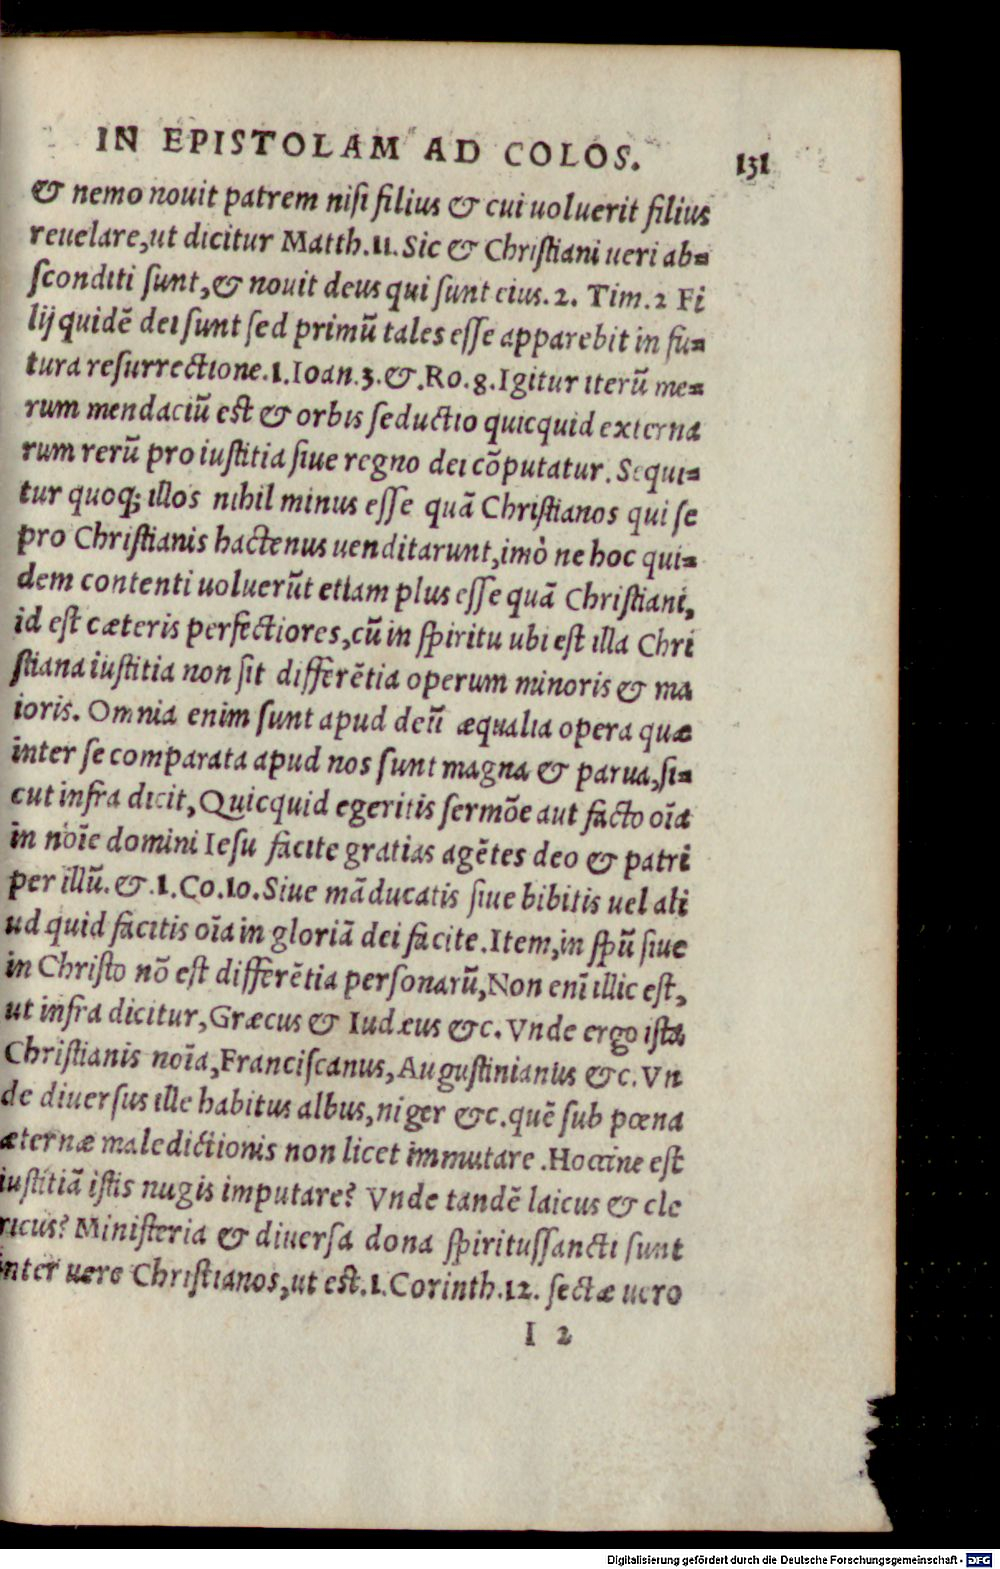 IN EPISTOLAM AD COLOS. 131
& nemo nouit patrem nisi filius & cui uoluerit filius
reuelare,ut dicitur Matth.11.Sic & Christiani ueri ab=
sconditi sunt,& nouit deus qui sunt eius.2. Tim.2 Fi
lij quidē dei sunt sed primū tales esse apparebit in fu=
tura resurrectione.1.Ioan.3.&.Ro.8.Igitur iterū me=
rum mendaciū est & orbis seductio quicquid externa
rum rerū pro iustitia siue regno dei cōputatur. Sequi=
tur quoq; illos nihil minus esse quā Christianos qui se
pro Christianis hactenus uenditarunt,imò ne hoc qui=
dem contenti uoluerūt etiam plus esse quā Christiani,
id est cæteris perfectiores,cū in spiritu ubi est illa Chri
stiana iustitia non sit differētia operum minoris & ma
ioris. Omnia enim sunt apud deū æqualia opera quæ
inter se comparata apud nos sunt magna & parua,si=
cut infra dicit,Quicquid egeritis sermōe aut facto oīa
in noīe domini Iesu facite gratias agētes deo & patri
per illū.&.1.Co.10.Siue māducatis siue bibitis uel ali
ud quid facitis oīa in gloriā dei facite.Item,in spū siue
in Christo nō est differētia personarū,Non enī illic est,
ut infra dicitur,Græcus & Iudæus &c. Vnde ergo ista
Christianis noīa,Franciscanus,Augustinianus &c. Vn
de diuersus ille habitus albus,niger &c.quē sub pœna
æternæ maledictionis non licet immutare .Hoccine est
iustitiā istis nugis imputare? Vnde tandē laicus & cle
ricus? Ministeria & diuersa dona spiritussancti sunt
inter uere Christianos,ut est.1.Corinth.12. sectæ uero
I 2
Digitalisierung gefördert durch die Deutsche Forschungsgemeinschaft - DFG